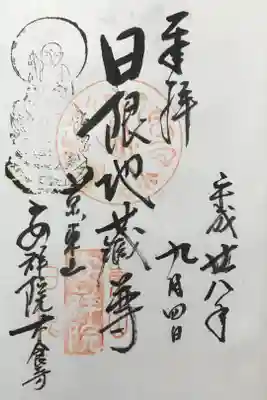 奉拝
平成廿八年
九月四日
日限地蔵尊
京東山
安祥院木食寺